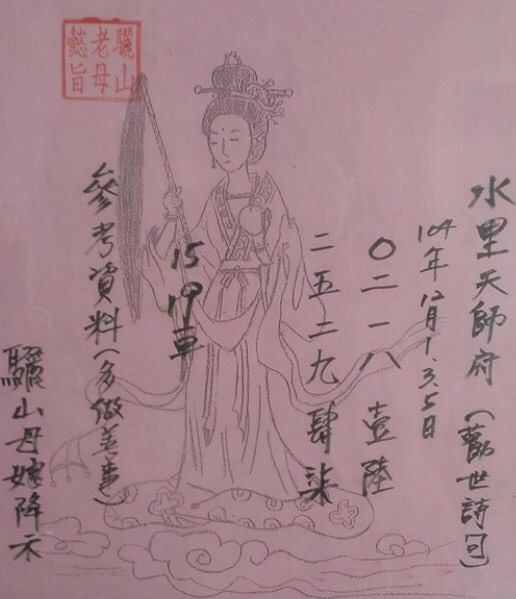 水里天師府（勸世詩句）
104年12月1.3.5日
〇二一八壹陸
二五二九肆柒
15 19
參考資料（多做善事）
驪山母娘降示
驪山
老母
懿旨